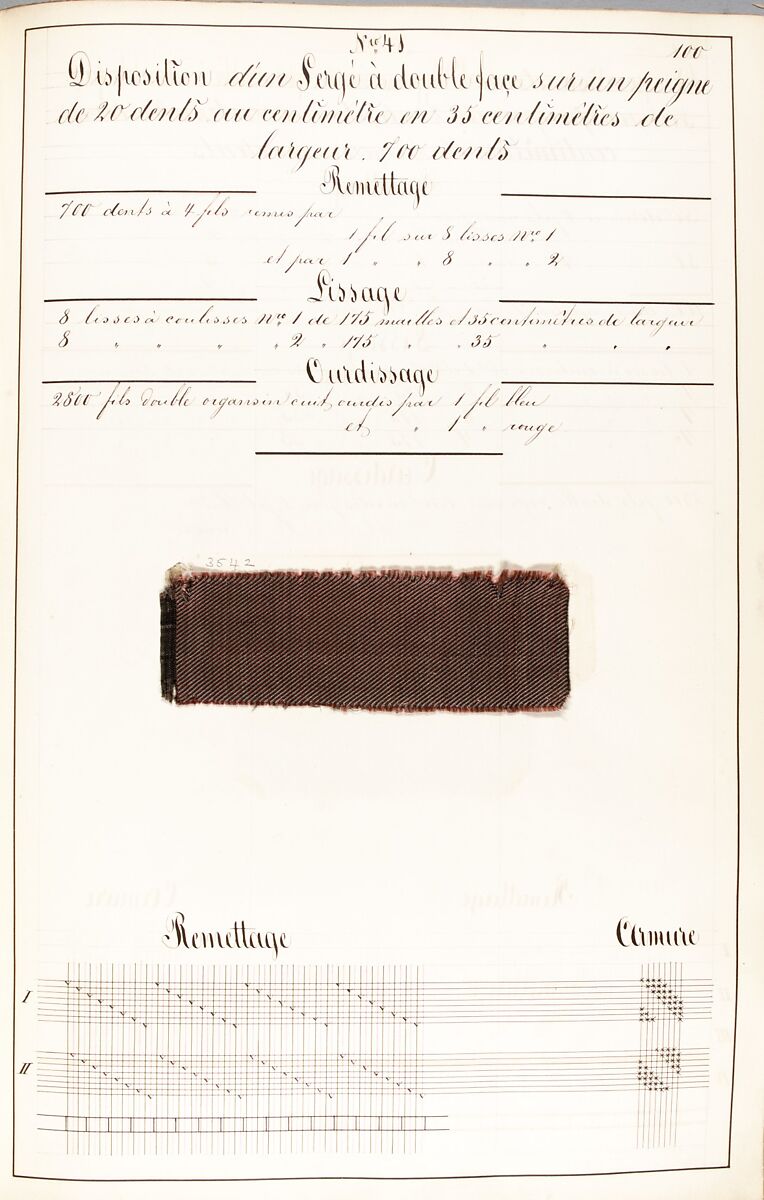 Nro 41
100
Disposition d'un Sergé à double face sur un peigne
de 20 dents au centimètre en 35 centimètres de
largeur. 700 dents
Remettage
700 dents à 4 fils remis par
1 fil sur 8 lisses Nro 1
et par 1 " " 8 " " 2
Lissage
8 lisses à coulisses Nro 1 de 175 mailles et 35 centimètres de largeur
8 " " " " 2 " 175 " " 35 " " "
Ourdissage
2800 fils double organsin cuit, ourdis par 1 fil bleu
et " 1 " rouge
3542
Remettage
Armure
I
II